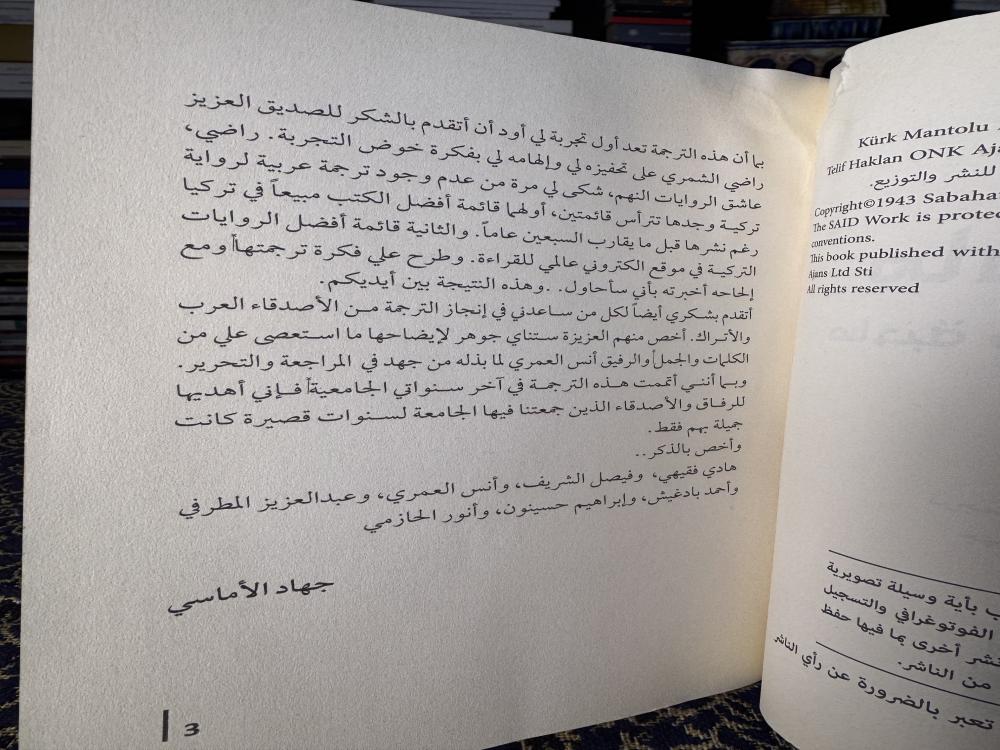 Kürk Mantolu
Telif Haklan ONK
للنشر والتوزيع.
Copyright©1943
The SAID Work is
conventions.
This book published with
Ajans Ltd Sti
All rights reserved
بأية وسيلة تصويرية
الفوتوغرافي والتسجيل
أخرى بما فيها حفظ
من الناشر.
تعبر بالضرورة عن رأي الناشر
بما أن هذه الترجمة تعد أول تجربة لي أود أن أتقدم بالشكر للصديق العزيز
راضي الشمري على تحفيزه لي وإلهامه لي بفكرة خوض التجربة. راضي،
عاشق الروايات النهم، شكى لي مرة من عدم وجود ترجمة عربية لرواية
تركيـة وجدها تترأس قائمتين، أولهما قائمة أفضل الكتب مبيعاً في تركيا
رغم نشرها قبل ما يقارب السبعين عاماً. والثانية قائمة أفضل الروايات
التركيـة في موقع الكتروني عالمي للقراءة. وطرح علي فكرة ترجمتها ومع
إلحاحه أخبرته بأني سأحاول. .وهذه النتيجة بين أيديكم.
أتقدم بشكري أيضاً لكل من ساعدني في إنجاز الترجمة مـن الأصدقاء العرب
والأتـراك. أخص منهم العزيزة ستناي جوهر لإيضاحها ما استعصى علي من
الكلمات والجمل والرفيق أنس العمري لما بذله من جهد في المراجعة والتحرير.
وبـما أننـي أتممت هـذه الترجمـة في آخر سنواتي الجامعية فـإني أهديها
للرفـاق والأصدقاء الذين جمعتنا فيها الجامعة لسـنوات قصيرة كانت
جميلة بهم فقط.
وأخص بالذكر..
هادي فقيهي، وفيصل الشريف، وأنس العمري، وعبدالعزيز المطرفي
وأحمد بادغيش، وإبراهيم حسينون، وأنور الحازمي
جهاد الأماسي
3